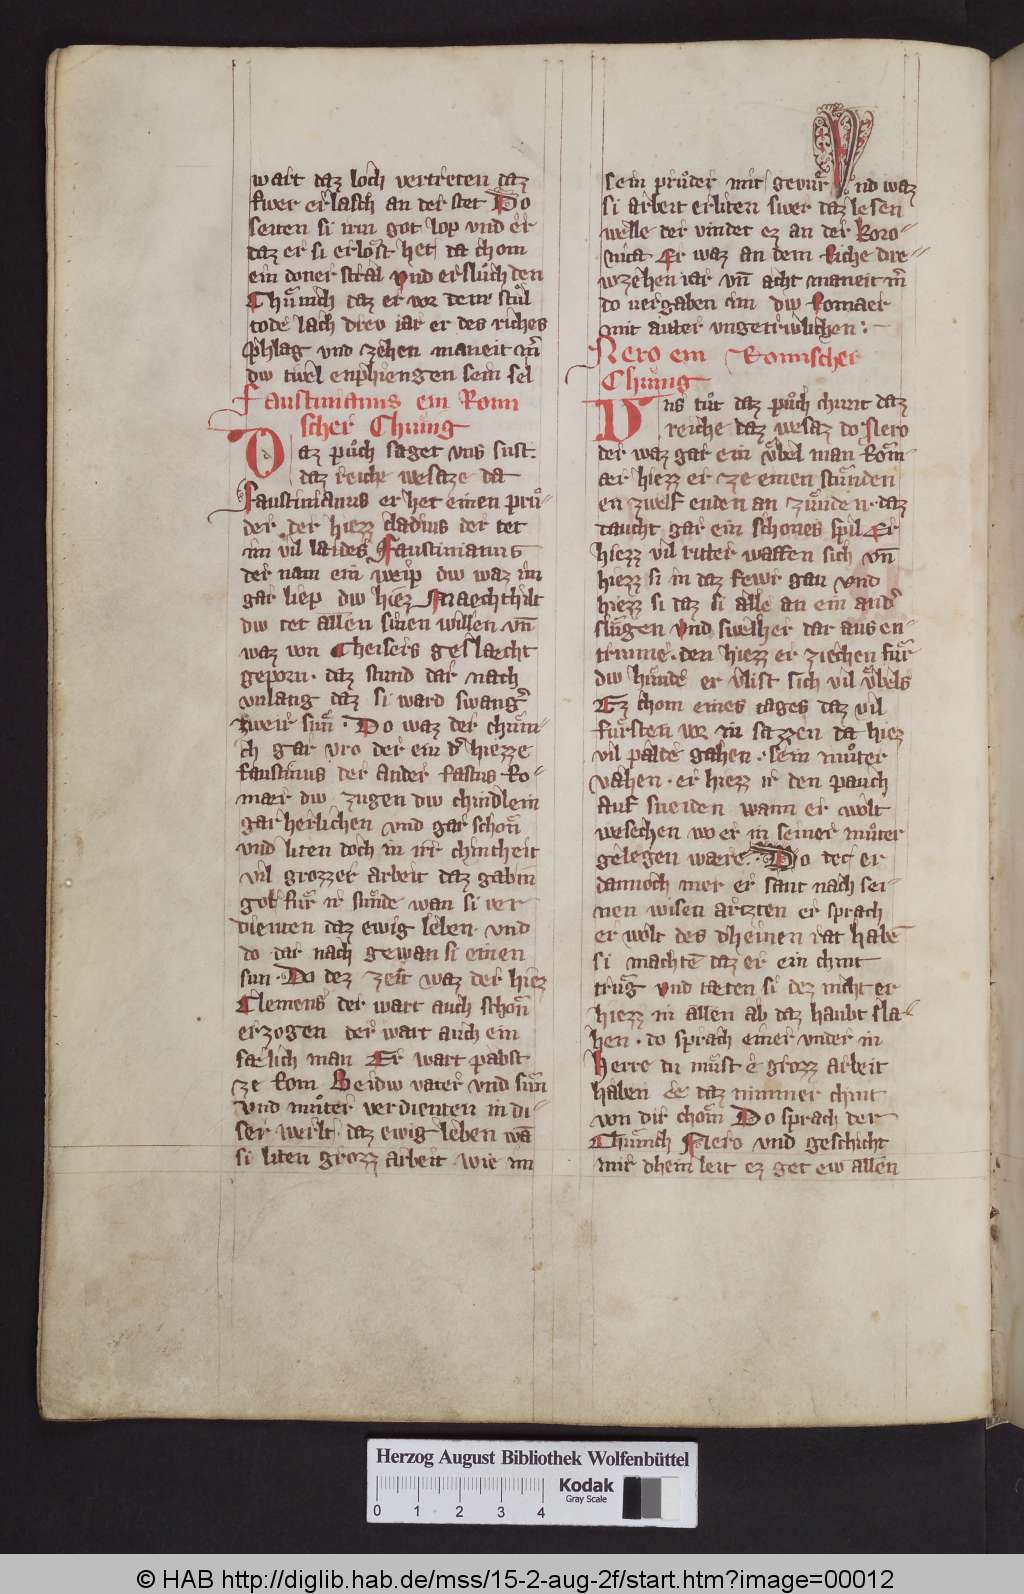 wart daz loch vertreten daz
fiwer erlasch an der stet Do
seiten si irm got lop vnd er
daz er si erlost het da chom
ein doner stral vnd ersluͦch den
Chuͤnich daz er vor dem stuͦl
tode lach drev iar er des riches
phlag vnd zehen maneit
diw tivel enphiengen sein sel
Faustinianus ein Romi
scher Chunig
Daz puͦch saget vns sust
daz reiche wesaze da
Faustinianus er het einen pruͦ-
der der hiezz cladius der tet
im vil laides Faustinianus
der nam ein weip diw waz im
gar liep diw hiez Maechthilt
diw tet allen sinen willen vn̄
waz von Cheisers geslaecht
geporn. daz stund dar nach
vnlang daz si ward swang
zweir sun. Do waz der chuͤni-
ch gar vro der ein d hiezze
faustinus der ander fastus Ro-
maer diw zugen diw chindlein
gar herlichen vnd gar schon
vnd liten doch in irr chintheit
vil grozzer arbeit daz gab in
got fuͤr ir sunde wan si ver
dienten daz ewig leben. vnd
do dar nach gewan si einen
sun. Do dez zeit waz der hiez
Clemens der wart auch schon
erzogen der wart auch ein
saelich man Er wart pabst
ze Rom Beidiw vater vnd sun
vnd muͦter verdienten in di-
ser werlt daz ewig leben wā
si liten grozz arbeit wie im
sein pruͦder mit gevuͤr Vnd waz
si arbeit erliten swer daz lesen
welle der vindet ez an der Koro-
nica Er waz an dem Riche dre-
wzehen iar vn̄ acht maneit
do vergaben im diw Romaer
mit aiter vngetriwlichen:
Nero ein Romischer
Chunig
Vns tuͦt daz puͦch chunt daz
reiche daz wesaz do Nero
der waz gar ein vͤbel man Rom
aer hiezz er ze einen stunden
en zwelf enden an zuͤnden. daz
taucht gar ein schones spil Er
hiezz vil ritter waffen sich vn̄
hiezz si in daz fewr gan vnd
hiezz si daz si alle an ein and
sluͤgen vnd swelher dar aus en-
trunne. den hiezz er ziechen fuͤr
diw hunde er vlist sich vil vͤbels
Ez chom eines tages daz vil
fuͤrsten vor im sazzen da hiez
vil palde gahen. sein muͦter
vahen. er hiezz ir den pauch
auf sneiden wann er wolt
wesechen wo er in seiner muͦter
gelegen waere. Do tet er
dannoch mer er sant nach sei-
nen wisen artzten er sprach
er wolt des dheinen rat habē
si machtē daz er ein chint
truͤg vnd taeten si dez nicht er
hiezz in allen ab daz haubt sla-
hen. do sprach einer vnder in
Herre du muͤst e grozz arbeit
haben e daz nimmer chint
von dir chom Do sprach der
Chuͤnich Nero vnd geschicht
mir dhein leit ez get ew allen
Herzog August Bibliothek Wolfenbüttel
Kodak
Gray Scale
0 1 2 3 4
© HAB http://diglib.hab.de/mss/15-2-aug-2f/start.htm?image=00012